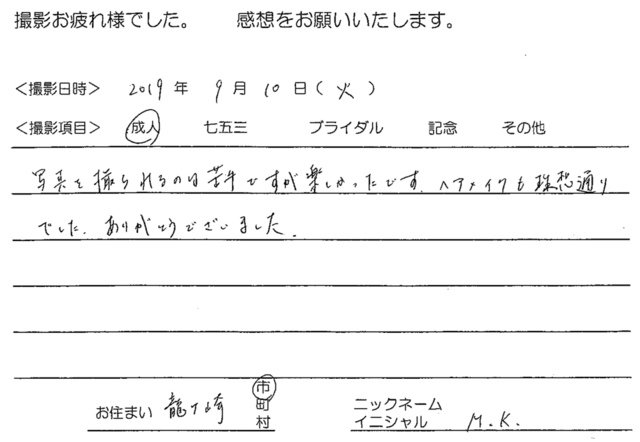 撮影お疲れ様でした。　感想をお願いいたします。
＜撮影日時＞ 2019 年 9 月 10 日（ 火 ）
＜撮影項目＞ 成人 七五三 ブライダル 記念 その他
写真を撮られるのは苦手ですが楽しかったです。ヘアメイクも理想通り
でした。ありがとうございました。
お住まい 龍ケ崎 市 町 村 ニックネーム イニシャル M.K.